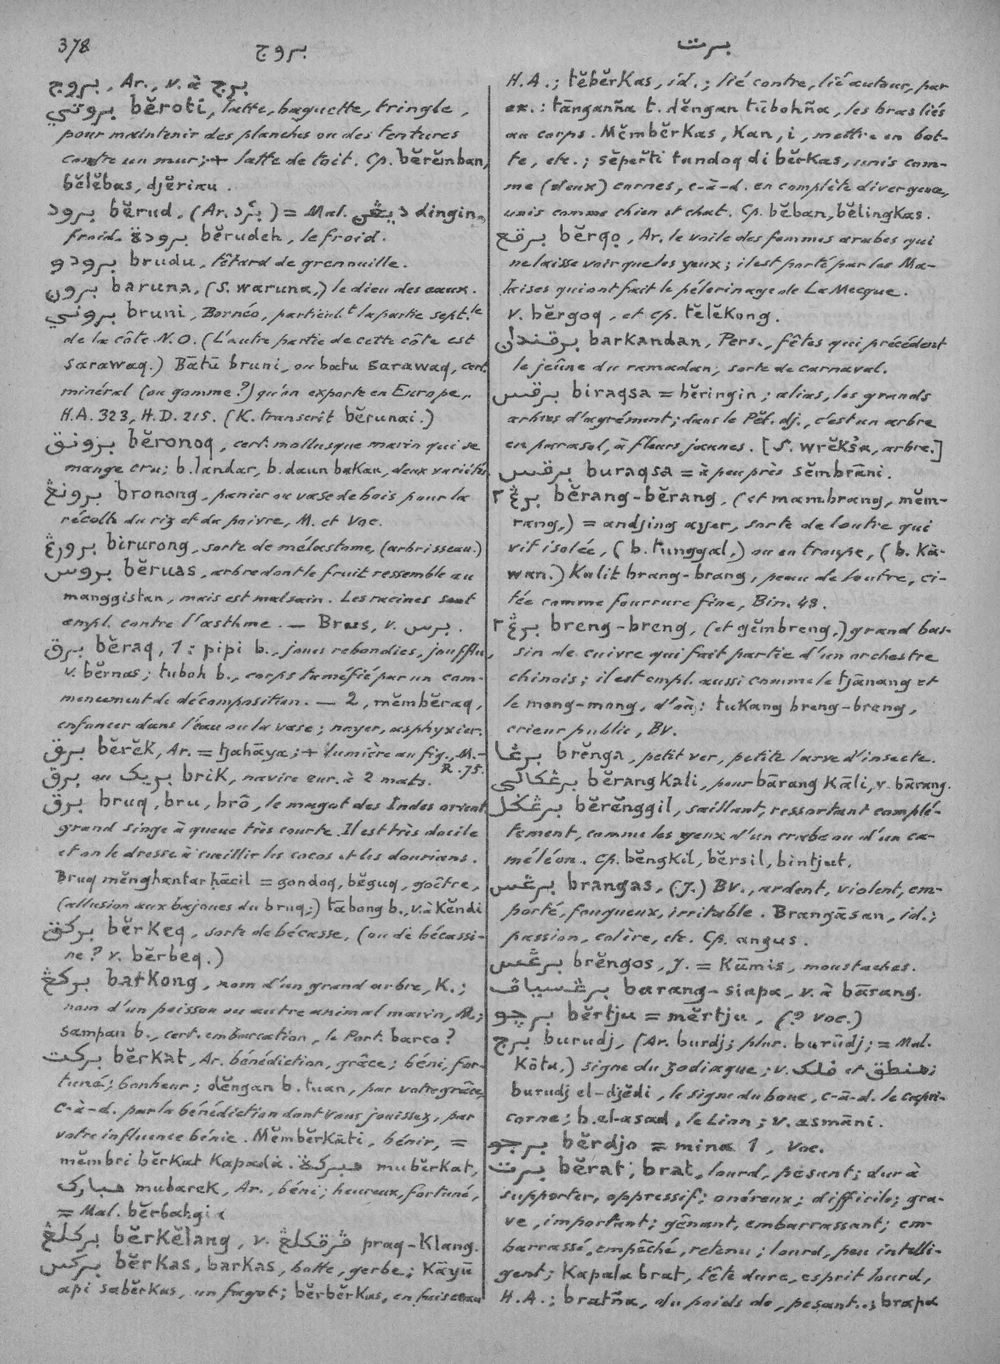 378
بروج
برت
بروج, Ar., v. à برج
بروتي bĕroti, latte, baguette, tringle,
pour maintenir des planches ou des tentures
contre un mur; + latte de toit. Cp. bĕrĕmban,
bĕlĕbas, djĕriau.
برود bĕrud, (Ar. بَرْد) = Mal. ديڠين dingin,
froid. برودة bĕrudeh, le froid.
برودو brudu, têtard de grenouille.
برون baruna, (S. waruna,) le dieu des eaux.
بروني bruni, Bornéo, particul.t la partie sept.le
de la côte N.O. (L'autre partie de cette côte est
sarawaq.) Bātū bruni, ou batu sarawaq, cert.
minéral (ou gomme?) qu'on exporte en Europe,
H.A. 323, H.D. 215. (K. transcrit bĕrunai.)
برونق bĕronoq, cert. mollusque marin qui se
mange cru; b. landar, b. daun bakau, deux variétés.
برونڠ bronong, panier ou vase de bois pour la
récolte du riz et du poivre, M. et Voc.
برورڠ birurong, sorte de mélastome, (arbrisseau.)
بروس bĕruas, arbre dont le fruit ressemble au
manggistan, mais est malsain. Les racines sont
empl. contre l'asthme. — Brus, v. برس.
برق bĕraq, 1: pipi b., joues rebondies, joufflu,
v. bĕrnas; tuboh b., corps tuméfié par un com-
mencement de décomposition. — 2, mĕmbĕraq,
enfoncer dans l'eau ou la vase; noyer, asphyxier.
برق bĕrĕk, Ar. = tjahāya; + lumière au fig., M.-
R. 75.
برق ou بريک brik, navire eur. à 2 mats.
برق bruq, bru, brō, le magot des Indes orient.
grand singe à queue très courte. Il est très docile
et on le dresse à cueillir les cocos et les dourians.
Bruq mĕnghantar ḥācil = gondoq, bĕguq, goître,
(allusion aux bajoues du bruq;) tābong b., v. à kĕndi
بركق bĕrkeq, sorte de bécasse, (ou de bécassi-
ne? v. bĕrbeq.)
بركڠ barkong, nom d'un grand arbre, K.;
nom d'un poisson ou autre animal marin, M.;
sampan b., cert. embarcation, le Port. barco?
بركت bĕrkat, Ar. bénédiction, grâce; béni, for-
tuné; bonheur; dĕngan b. tuan, par votre grâce,
c.-à-d. par la bénédiction dont vous jouissez, par
votre influence bénie. Mĕmbĕrkāti, bénir, =
mĕmbri bĕrkat kapada. مبركة mubĕrkat,
مبارک mubarek, Ar., béni; heureux, fortuné,
= Mal. bĕrbahgi.
بركلڠ bĕrkĕlang, v. ڤرقكلڠ praq-klang.
بركس bĕrkas, barkas, botte, gerbe; kāyū
api sabĕrkas, un fagot; bĕrbĕrkas, en faisceau
H.A.; tĕbĕrkas, id.; lié contre, lié autour, par
ex.: tānganña t. dĕngan tūbohña, les bras liés
au corps. Mĕmbĕrkas, kan, i, mettre en bot-
te, etc.; sĕpĕrti tandoq di bĕrkas, unis com-
me (deux) cornes, c-à-d. en complète divergence,
unis comme chien et chat. Cp. bĕban, bĕlingkas.
برقع bĕrqo, Ar, le voile des femmes arabes qui
ne laisse voir que les yeux; il est porté par les Ma-
laises qui ont fait le pélerinage de La Mecque.
v. bĕrgoq, et cp. tĕlĕkong.
برقندان barkandan, Pers., fêtes qui précédent
le jeûne du ramadan; sorte de carnaval.
برقس biraqsa = bĕringin; alias, les grands
arbres d'agrément; dans le Pĕl. dj., c'est un arbre
en parasol, à fleurs jaunes. [S. wrĕkša, arbre.]
برقس buraqsa = à peu près sĕmbrāni.
برڠ٢ bĕrang-bĕrang, (et mambrang, mĕm-
rang,) = andjing ayer, sorte de loutre qui
vit isolée, (b. tunggal,) ou en troupe, (b. kā-
wan.) Kulit brang-brang, peau de loutre, ci-
tée comme fourrure fine, Bin. 48.
برڠ٢ breng-breng, (et gĕmbreng,) grand bas-
sin de cuivre qui fait partie d'un orchestre
chinois; il est empl. aussi comme le tjānang et
le mong-mong, d'où: tukang breng-breng,
crieur public, BV.
برڠا brĕnga, petit ver, petite larve d'insecte.
برڠكالي bĕrangkali, pour bārang kāli, v. bārang.
برڠݢل bĕrĕnggil, saillant, ressortant complé-
tement, comme les yeux d'un crabe ou d'un ca-
méléon. Cp. bĕngkil, bĕrsil, bintjut.
برڠس brangas, (J.) BV., ardent, violent, em-
porté, fougueux, irritable. Brangāsan, id.;
passion, colère, etc. Cp. angus.
برڠس brĕngos, J. = kūmis, moustaches.
برڠ سياڤ barang-siapa, v. à bārang.
برچو bĕrtju = mĕrtju, (? voc.)
برج burudj, (Ar. burdj; plur. burūdj; = Mal.
kōta,) signe du zodiaque; v. فلک et منطق;
burudj el-djĕdi, le signe du bouc, c-à-d. le capri-
corne; b. el-asad, le Lion; v. asmāni.
برجو bĕrdjo = mina 1, voc.
برت bĕrat, brat, lourd, pesant; dur à
supporter, oppressif; onéreux; difficile; gra-
ve, important; gênant, embarrassant; em-
barrassé, empêché, retenu; lourd, peu intelli-
gent; kapala brat, tête dure, esprit lourd,
H.A.; bratña, du poids de, pesant..; brapa